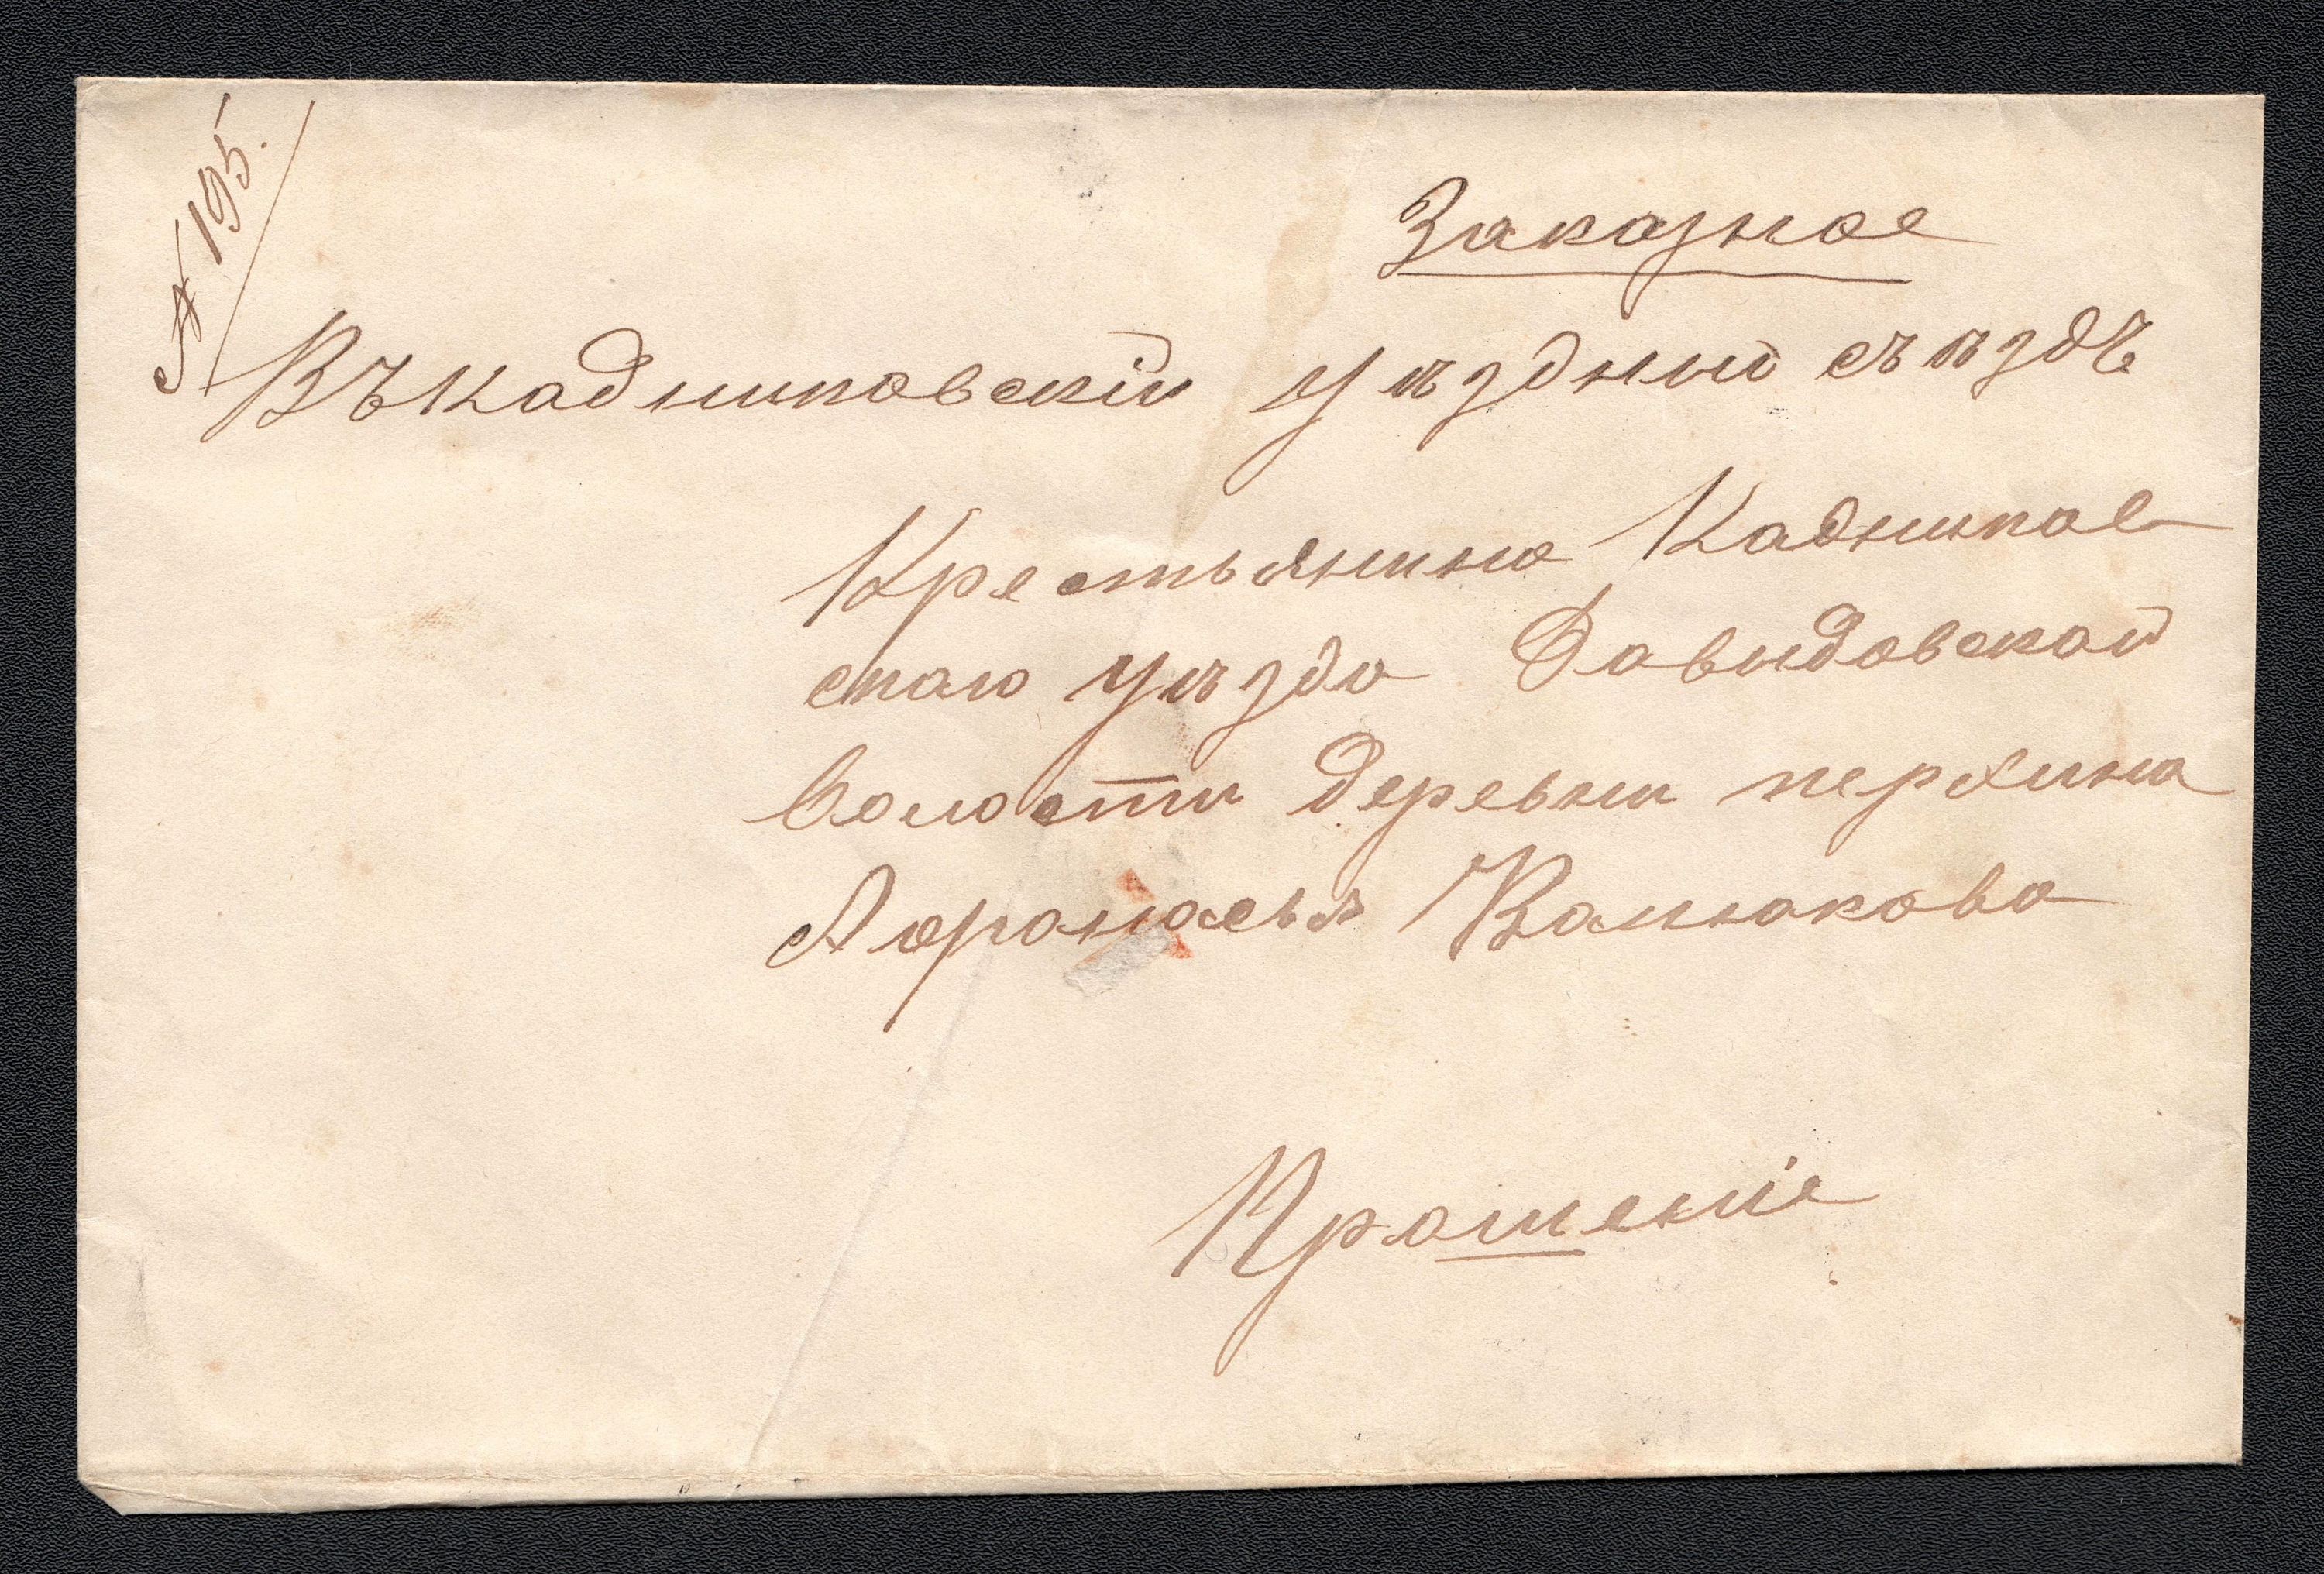 № 195.
Заказное
Въ Кадниковскій Уѣздный съѣздъ
Крестьянина Кадников-
скаго Уѣзда Давыдовской
Волости деревни перхина
Афонасья Ванюкова
Прошеніе